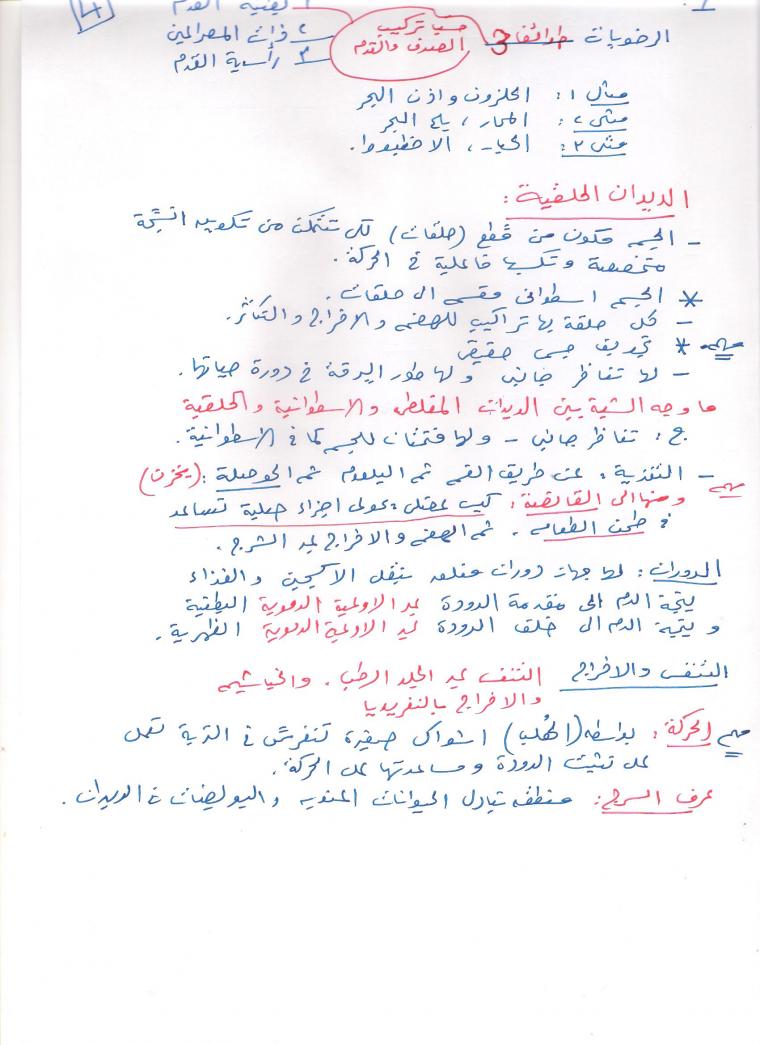 4
بطنية القدم
الرخويات طوائفها 3 حسب تركيب الصدف والقدم
٢ ذوات المصراعين
٣ رأسية القدم
مثال ١: الحلزون واذن البحر
مثال ٢: المحار، بلح البحر
مثال ٣: الحبار، الاخطبوط.
الديدان الحلقية:
- الجسم مكون من قطع (حلقات) لكي تتمكن من تكوين انسجة
متخصصة وتكسبها فاعلية في الحركة.
* الجسم اسطواني مقسم الى حلقات.
- كل حلقة بها تراكيب للهضم والاخراج والتكاثر.
مهم * تجويف جسمي حقيقي
- لها تناظر جانبي ولها طور اليرقة في دورة حياتها.
ما وجه الشبه بين الديدان المفلطحة والاسطوانية والحلقية
ج: تناظر جانبي - ولها فتحتان للجسم كما في الاسطوانية.
- التغذية: عن طريق الفم ثم البلعوم ثم الحوصلة: (يخزن)
مهم ومنها الى القانصة: كيس عضلي يحوي اجزاء صلبة تساعد
في طحن الطعام. ثم الهضم والاخراج عبر الشرج.
الدوران: لها جهاز دوران مغلق ينقل الاكسجين والغذاء
يتجة الدم الى مقدمة الدودة عبر الاوعية الدموية البطنية
ويتجة الدم الى خلف الدودة عبر الاوعية الدموية الظهرية.
التنفس والاخراج التنفس عبر الجلد الرطب. والخياشيم
والاخراج بالنفريديا
مهم الحركة: بواسطة (الهُلب) اشواك صغيرة تنغرس في التربة تعمل
على تثبيت الدودة ومساعدتها على الحركة.
عرف السرج: منطقة تبادل الحيوانات المنوية والبويضات في الديدان.